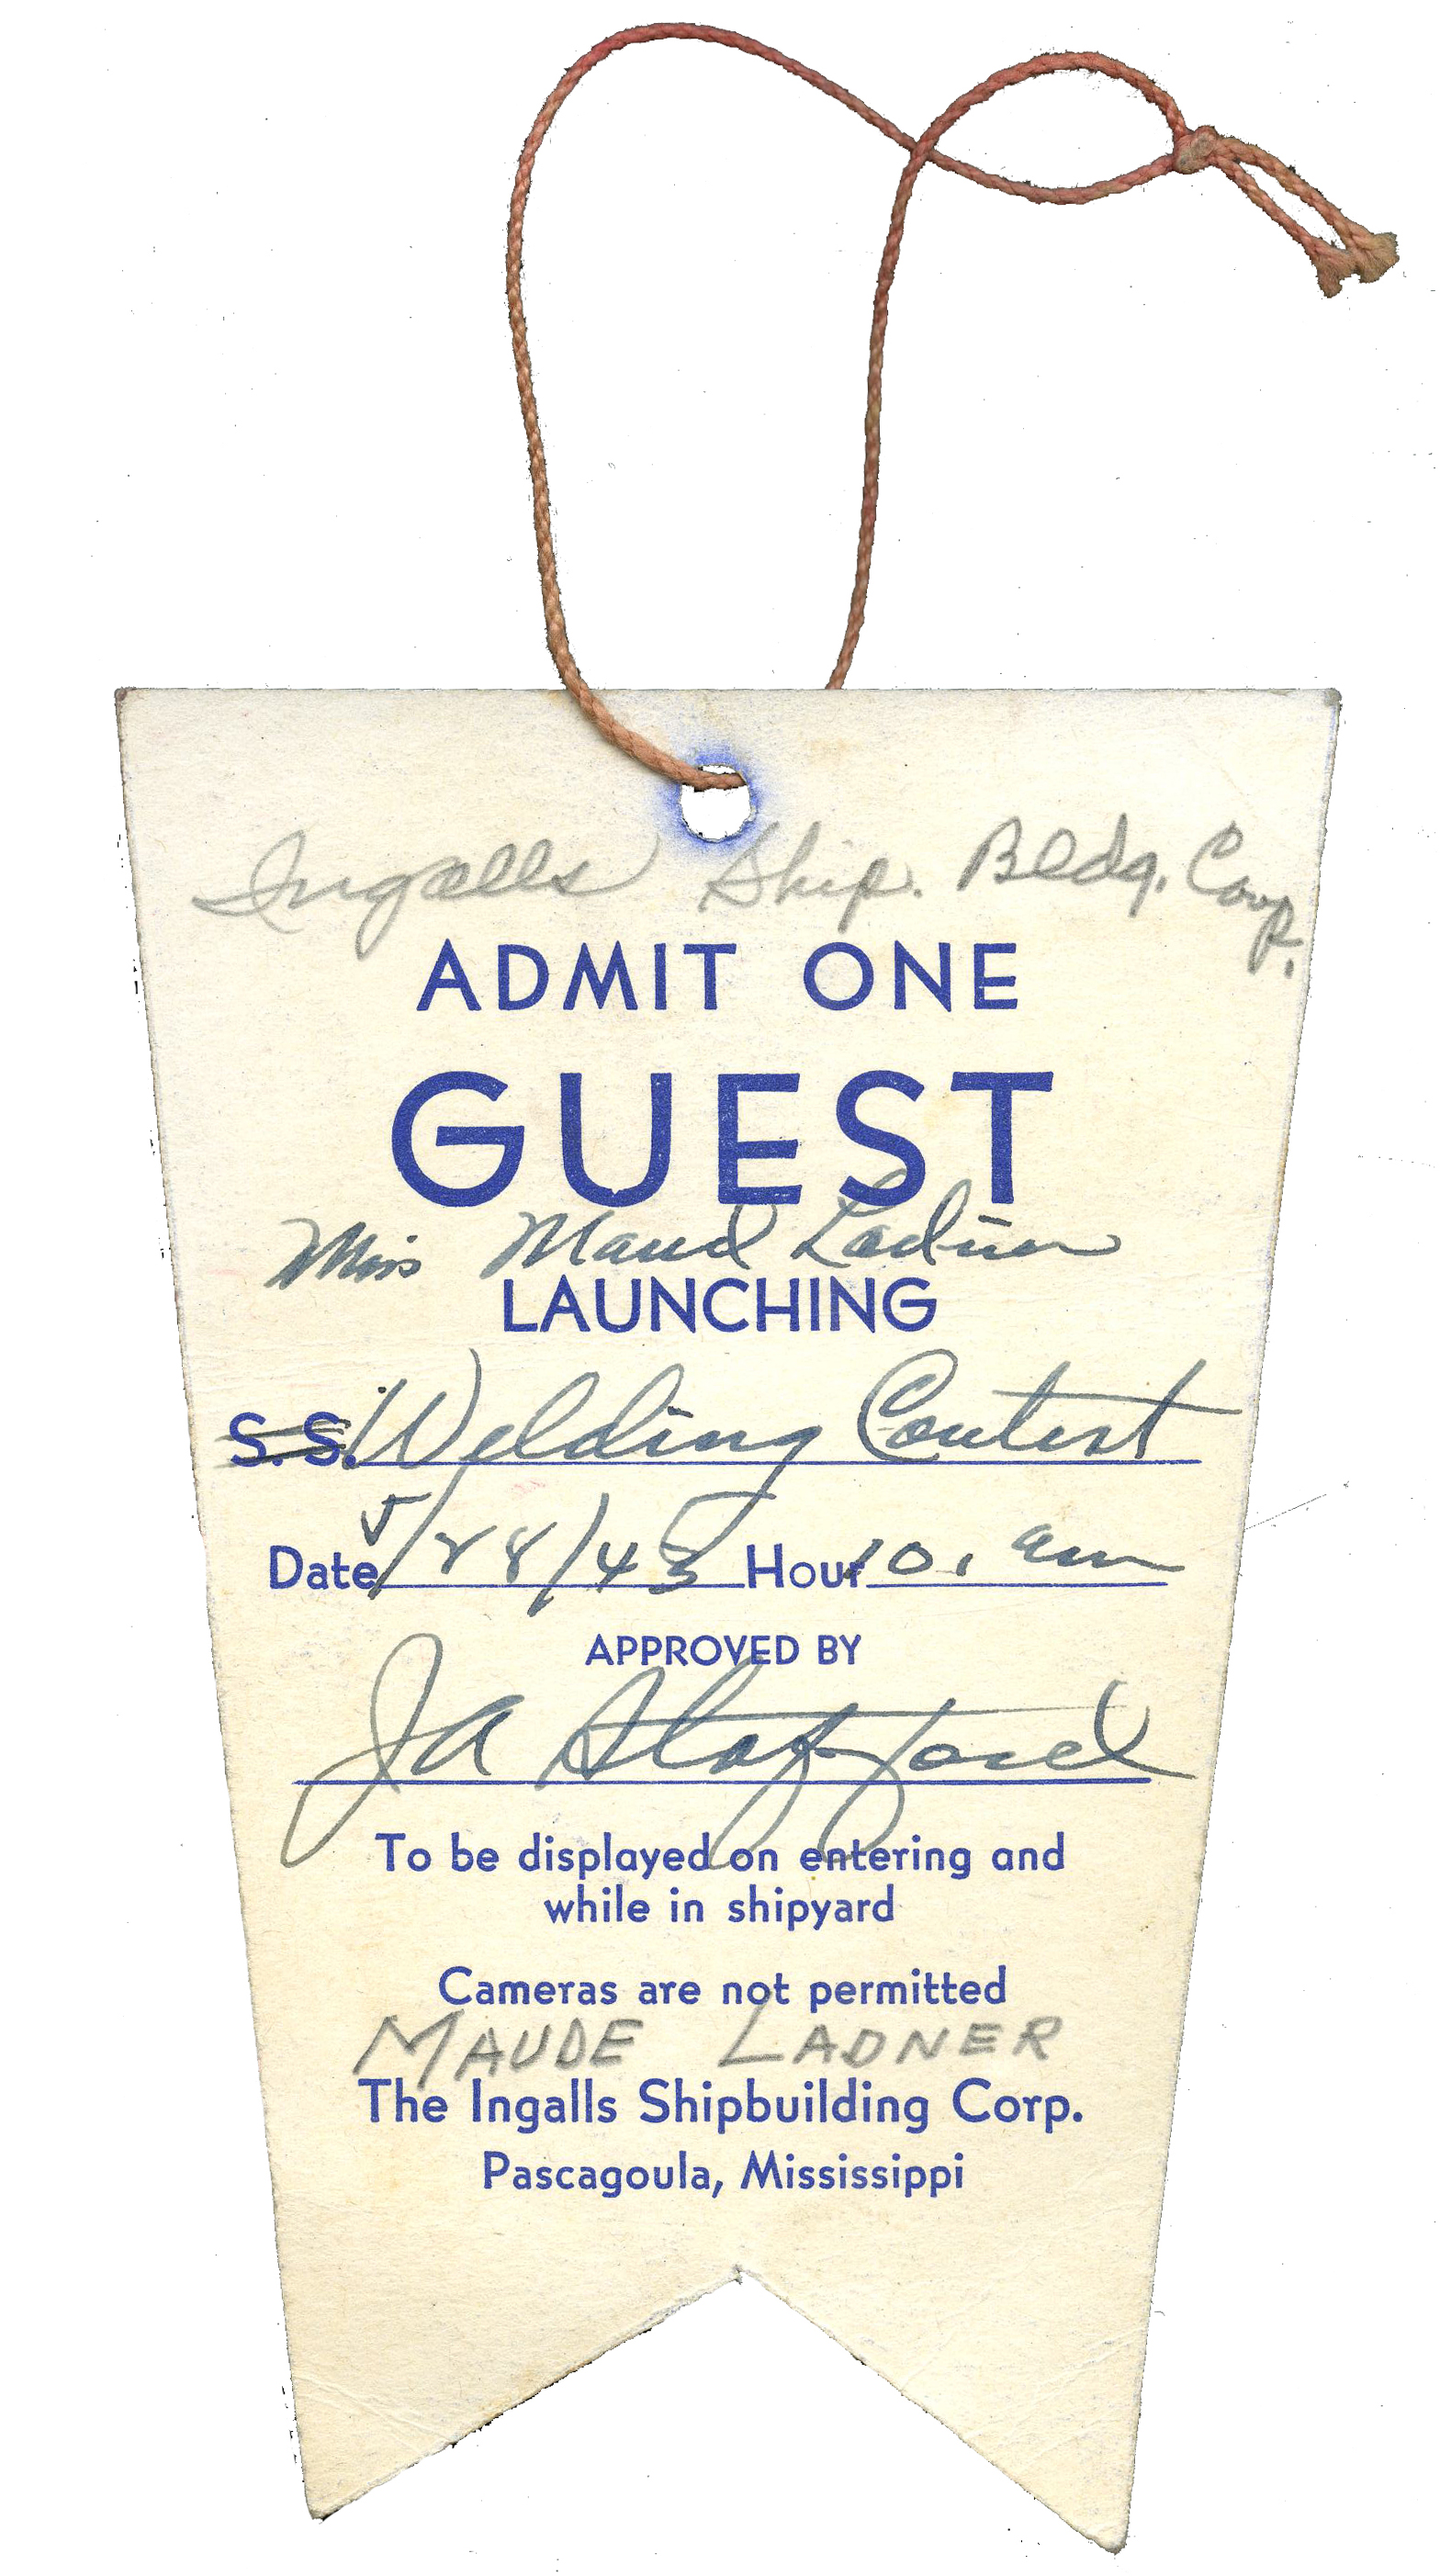 Ingalls Ship. Bldg. Corp.
ADMIT ONE
GUEST
Miss Maud Ladner
LAUNCHING
S.S. Welding Contest
Date 5/28/43 Hour 10. am
APPROVED BY
JA Stafford
To be displayed on entering and
while in shipyard
Cameras are not permitted
MAUDE LADNER
The Ingalls Shipbuilding Corp.
Pascagoula, Mississippi